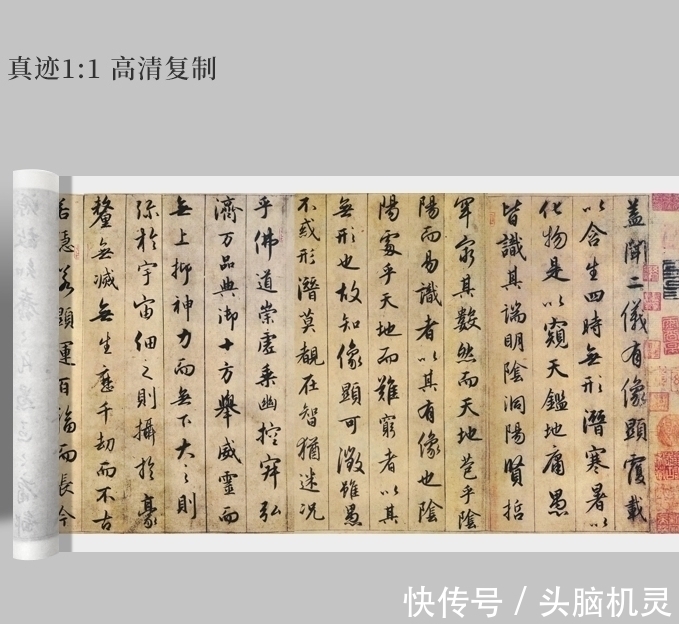 真迹1:1 高清复制
蓋聞二儀有像顯覆載
以含生四時無形潛寒暑以
化物是以窺天鑑地庸愚
皆識其端明陰洞陽賢哲
罕窮其數然而天地苞乎陰
陽而易識者以其有像也陰
陽處乎天地而難窮者以其
無形也故知像顯可徵雖愚
不惑形潛莫覩在智猶迷况
乎佛道崇虛乘幽控寂弘
濟万品典御十方舉威靈而
無上抑神力而無下大之則
弥於宇宙細之則攝於豪
釐無滅無生歷千劫而不古
若隱若顯運百福而長今
快传号 / 头脑机灵